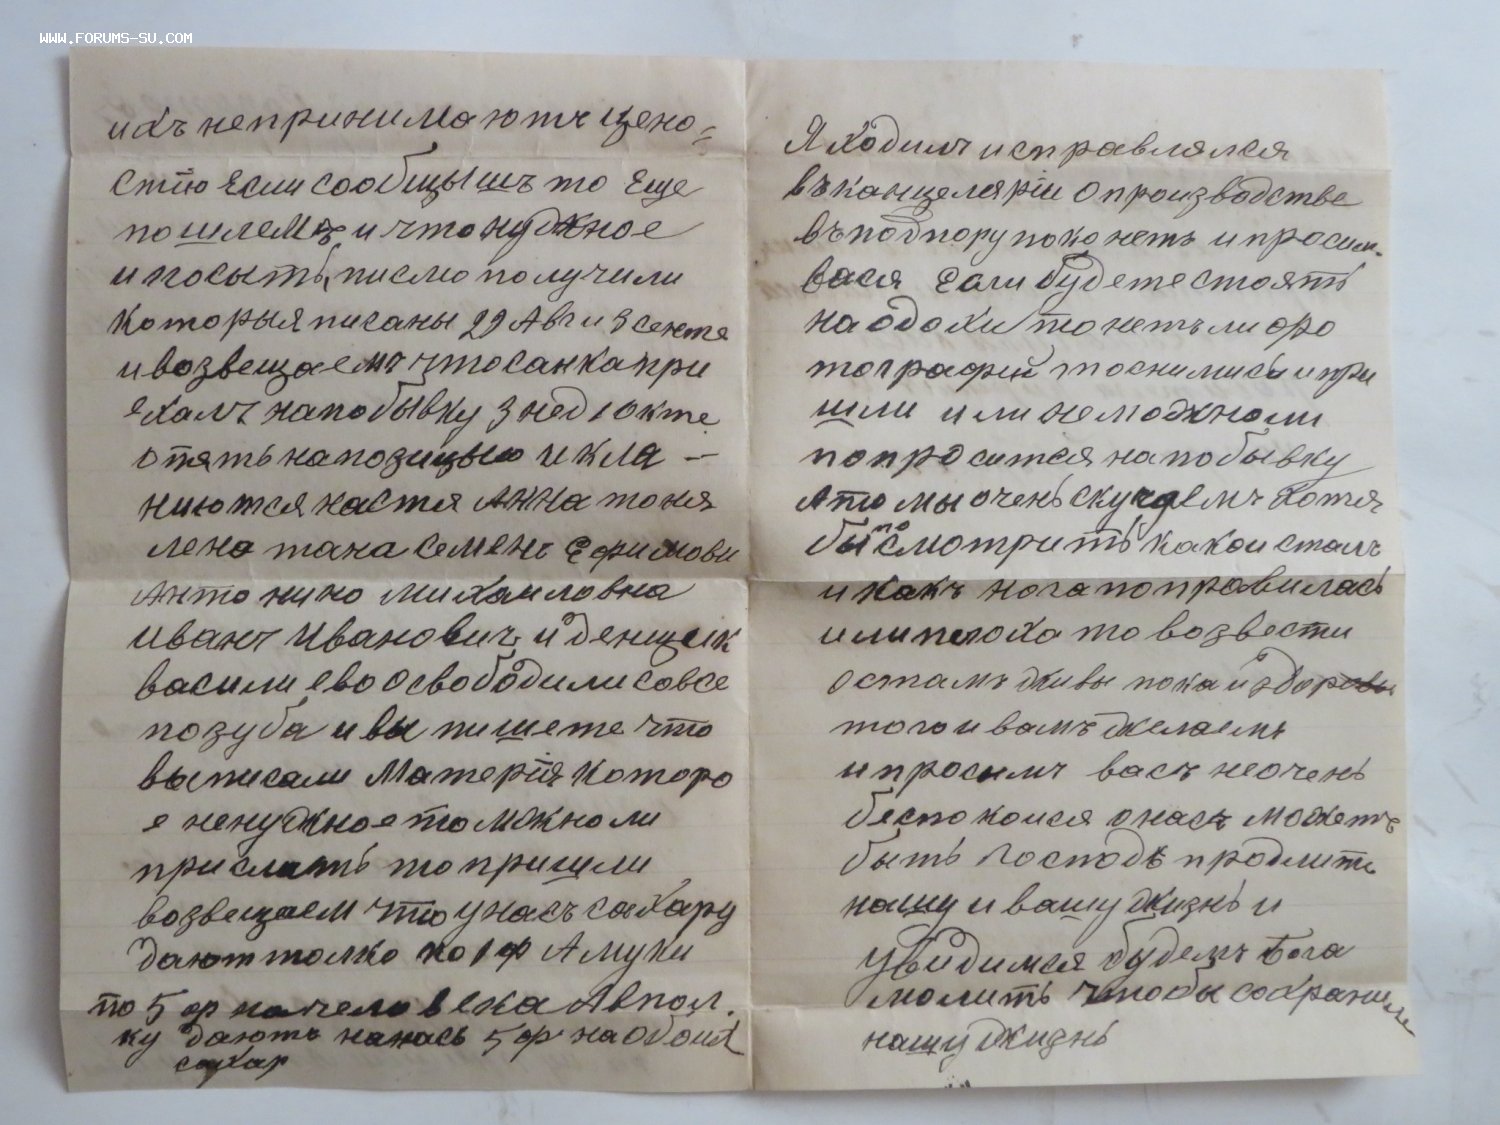 WWW.FORUMS-SU.COM
ихъ непринимаютъ цено=
стiю Если сообщышъ то Еще
пошлемъ и что нужное
и посыть, писмо получили
Которыя писаны 22 Авг и 3 сентя
и возвещаемъ что санка при
ехалъ напобывку 3 нед 1 окте
опять напозицыю и кля —
ниются настя Анна тоня
лена тана семенъ Ефимови
Антонино Михаиловна
иванъ Ивановичъ и денщеик
васили ево освободили совсе
позуба и вы пишете что
выписали Материя которо
е ненужное то можно ли
прислать то пришли
возвещаем что унасъ сахару
дают толко по 1 ф А муки
по 5 ф на человека Авпол.
ку дають нанась 5 ф на обоих
сахар
Я ходилъ исправлялся
въканцелярiи о производстве
въподпору пока нетъ и просим.
вася Если будете стоять
на одохи то нетъли фо
тографiй то снимись и при
шли или неможноли
попроситса напобывку
Ато мы очень скучаемъ хотя
бы то смотрить какои сталъ
и какъ нога поправилась
или плоха то возвести
Остамъ живы пока и здоровы
того и вамъ желаемъ
и просимъ васъ неочень
беспокоися онасъ можетъ
быть Господь продлить
нашу и вашу жизнь и
увидимся будемъ Бога
молить чтобы сохранил
нашу жизнь